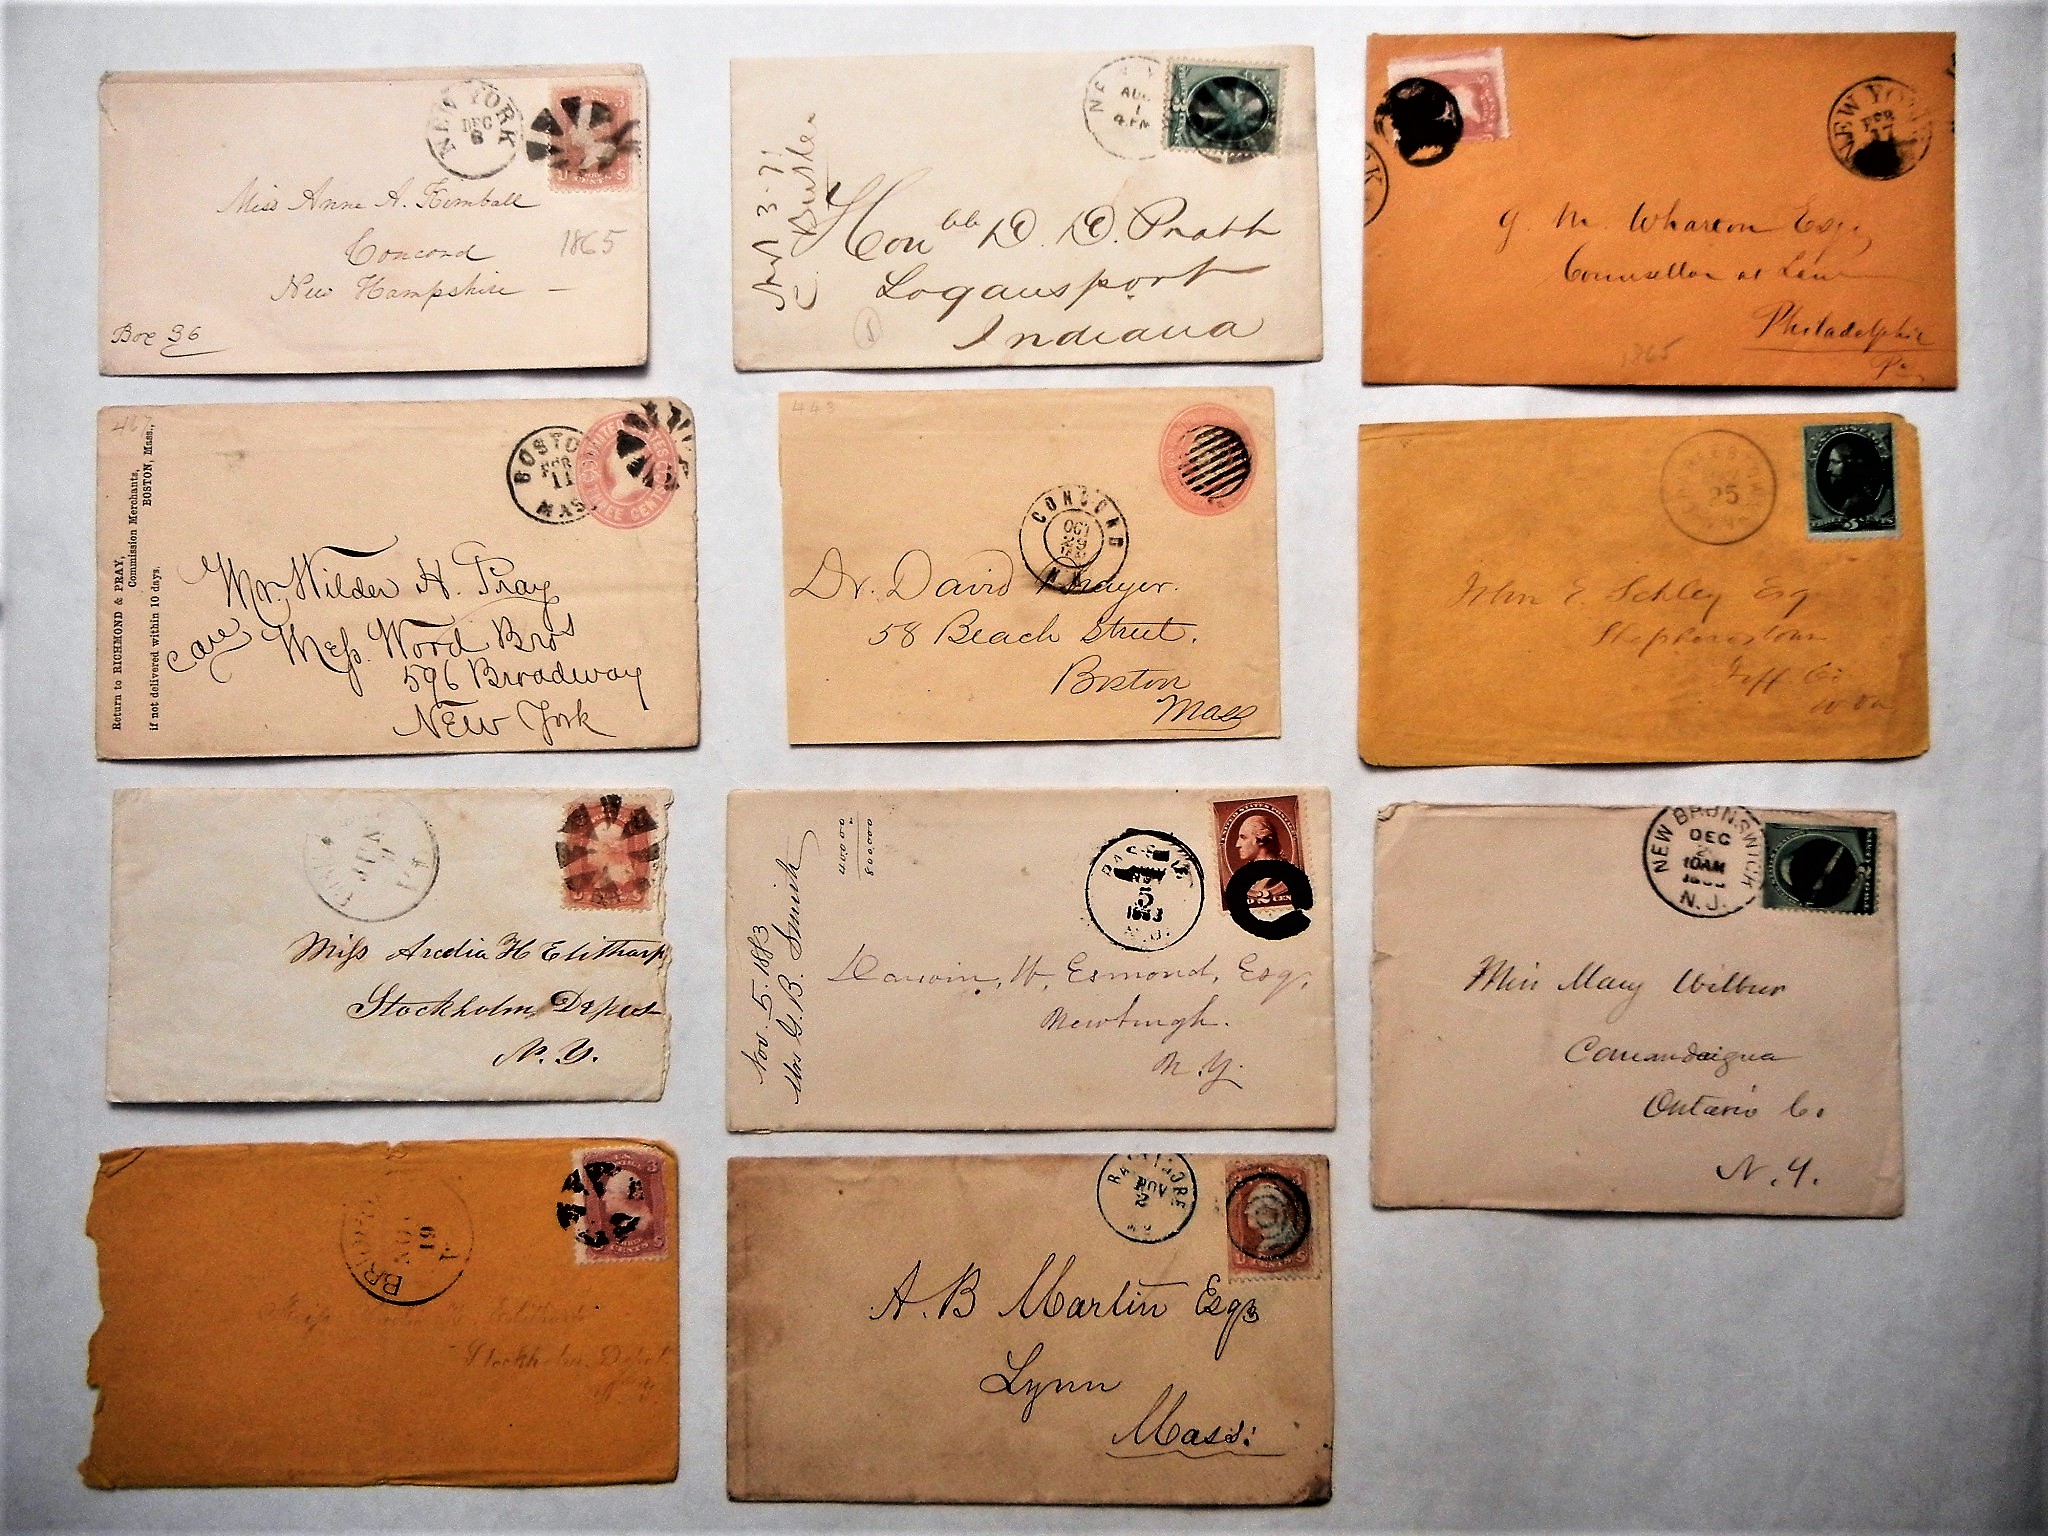 NEW YORK
DEC
6
Miss Anne A. Kimball
Concord
1865
New Hampshire
Box 36
AUG
1
4 PM
Hon ble D. D. Pratt
Logansport
Indiana
NEW YORK
FEB
17
G. M. Wharton Esq.
Counsellor at Law
Philadelphia
Pa
1865
467
Return to RICHMOND & PRAY,
Commission Merchants,
BOSTON, Mass.,
if not delivered within 10 days.
BOSTON
FEB
11
MASS
UNITED STATES
THREE CENTS
Mr. Wilder H. Pray
Care Mess. Word Bros
596 Broadway
New York
448
CONCORD
OCT
N.H.
Dr. David Thayer.
58 Beach Street.
Boston
Mass
25
John E. Schley Esq
Shepherdstown
Jeff. Co.
W Va
Miss Arcelia H Elithorp
Stockholm Depot
N. Y.
Nov. 5. 1883
Mrs G. B. Smith
40000
800000
5
1883
2
Darwin, W, Esmond, Esq,
Newburgh.
N. Y.
NEW BRUNSWICK
DEC
10AM
N.J.
Miss Mary Wilbur
Canandaigua
Ontario Co.
N. Y.
19
Miss
Stockholm Depot
N. Y.
BALTIMORE
NOV
2
A. B Martin Esq
Lynn
Mass.